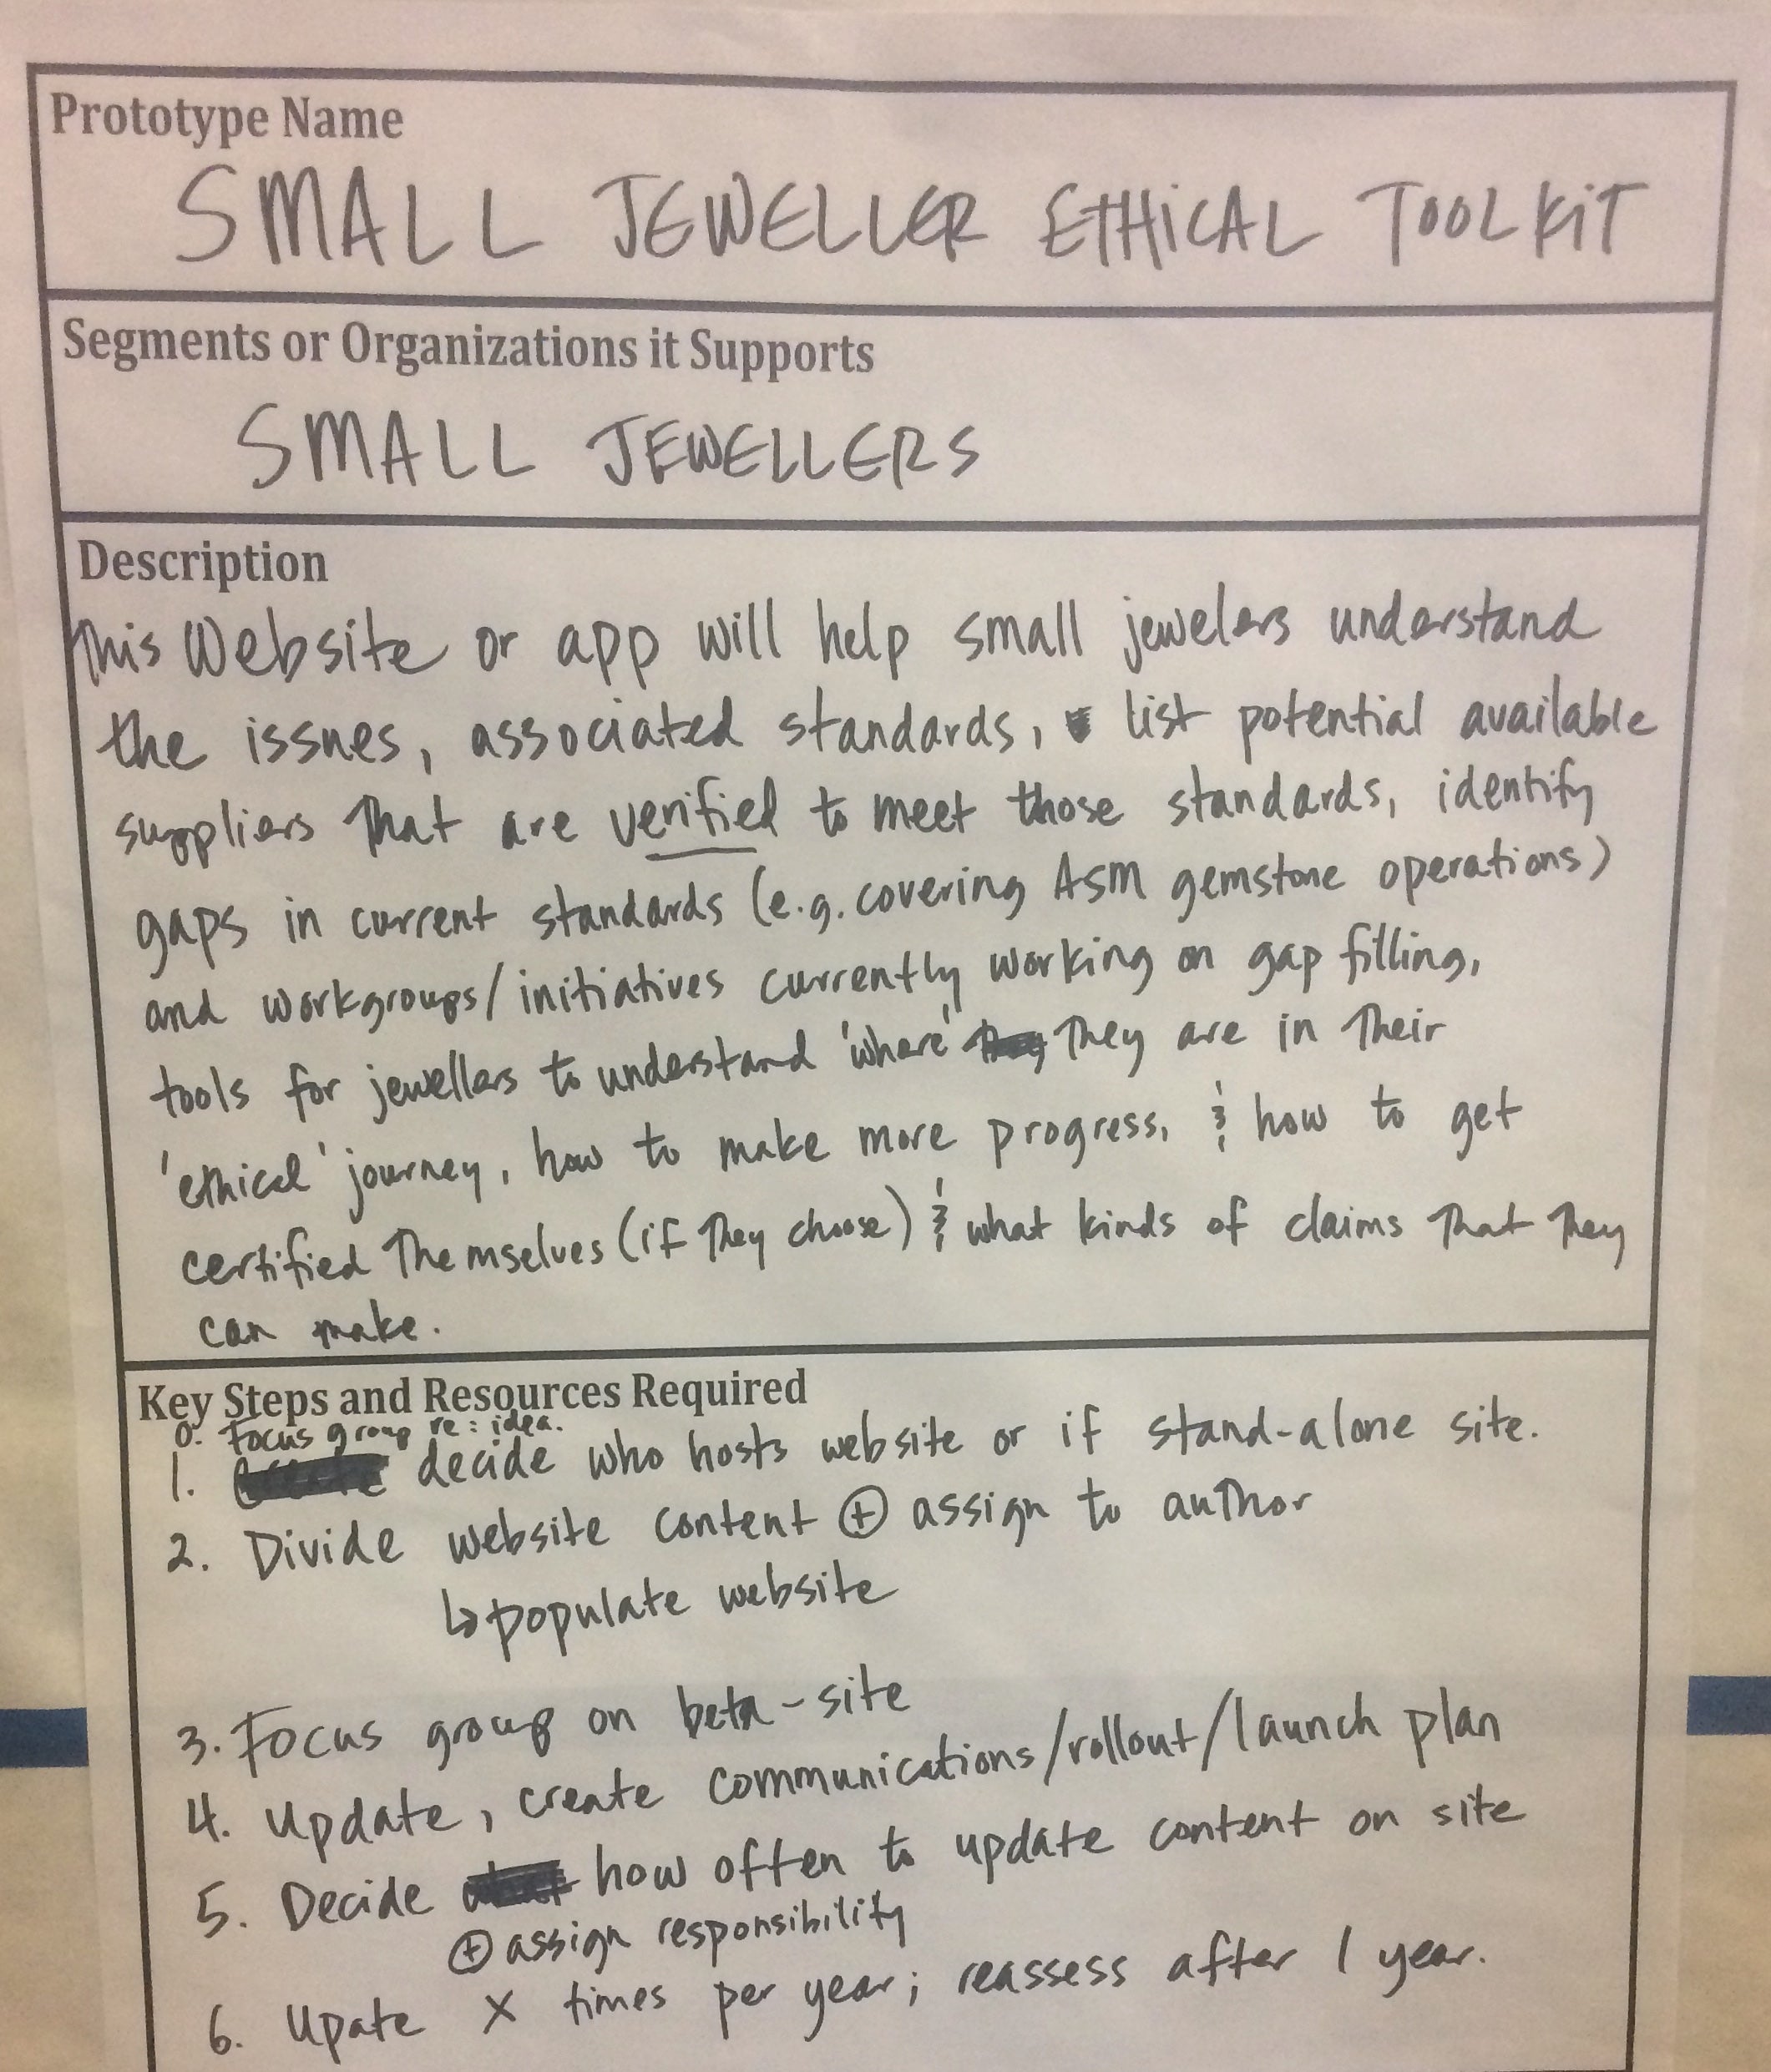 Prototype Name
SMALL JEWELLER ETHICAL TOOLKIT
Segments or Organizations it Supports
SMALL JEWELLERS
Description
This Website or app will help small jewelers understand
the issues, associated standards, list potential available
suppliers that are verified to meet those standards, identify
gaps in current standards (e.g. covering ASM gemstone operations)
and workgroups/initiatives currently working on gap filling,
tools for jewellers to understand 'where' they are in their
'ethical' journey, how to make more progress, & how to get
certified themselves (if they choose) & what kinds of claims that they
can make.
Key Steps and Resources Required
0. Focus group re: idea.
1. decide who hosts website or if stand-alone site.
2. Divide website content ⊕ assign to author
↳ populate website
3. Focus group on beta-site
4. Update, create communications/rollout/launch plan
5. Decide how often to update content on site
⊕ assign responsibility
6. Upate X times per year; reassess after 1 year.